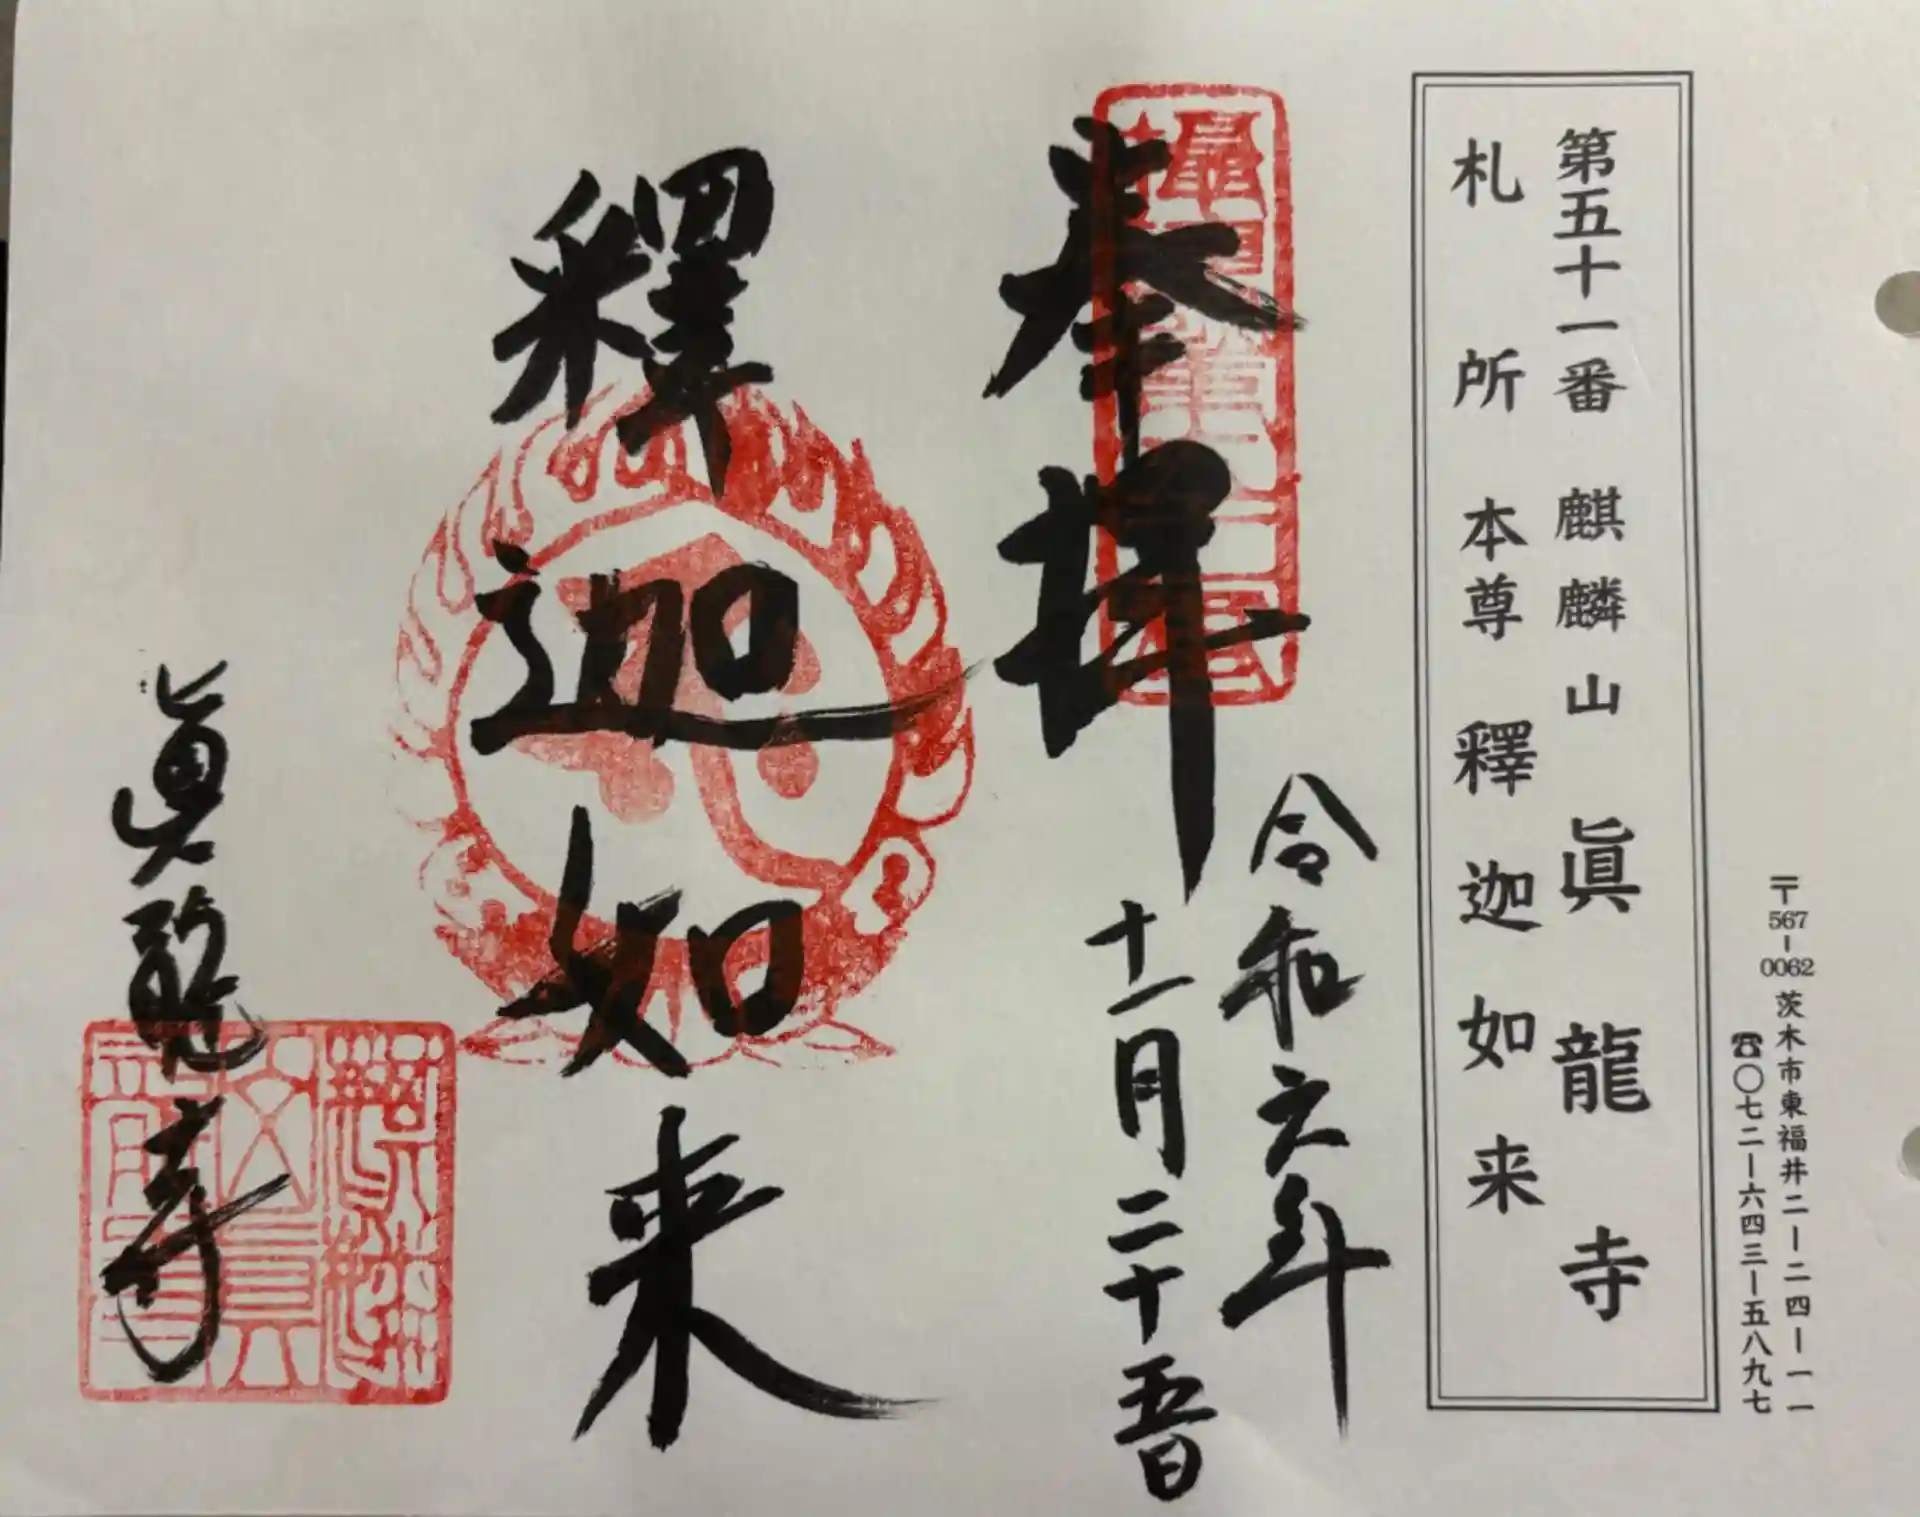 〒567-0062 茨木市東福井二-二四-一一
☎〇七二-六四三-五八九七
第五十一番 麒麟山 眞龍寺
札所本尊 釋迦如来
奉拝
令和六年
十一月二十五日
釋迦如来
眞龍寺